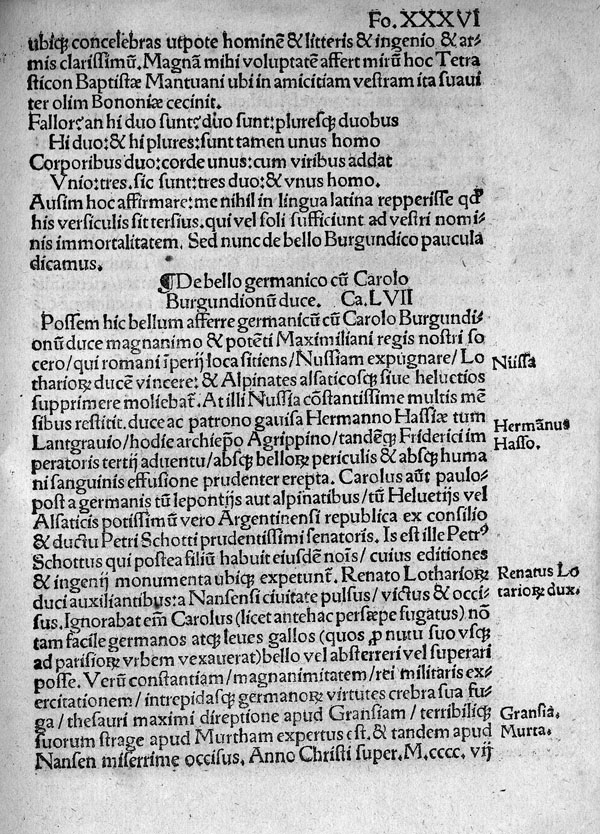 Fo. XXXVI
ubiqꝫ concelebras utpote hominē & litteris & ingenio & ar⸗
mis clarissimū. Magnā mihi voluptatē affert mirū hoc Tetra
sticon Baptistæ Mantuani ubi in amicitiam vestram ita suaui
ter olim Bononiæ cecinit.
Fallor? an hi duo sunt? duo sunt: pluresqꝫ duobus
Hi duo: & hi plures: sunt tamen unus homo
Corporibus duo: corde unus: cum viribus addat
Vnio: tres. sic sunt: tres duo: & vnus homo.
Ausim hoc affirmare: me nihil in lingua latina repperisse qđ
his versiculis sit tersius. qui vel soli sufficiunt ad vestri nomi⸗
nis immortalitatem. Sed nunc de bello Burgundico paucula
dicamus.
¶De bello germanico cū Carolo
Burgundionū duce. Ca. LVII
Possem hic bellum afferre germanicū cū Carolo Burgundi⸗
onū duce magnanimo & potēti Maximiliani regis nostri so
cero/ qui romani īperij loca sitiens/ Nussiam expugnare/ Lo
thariorꝫ ducē vincere: & Alpinates alsaticosqꝫ siue heluctios
supprimere moliebat̃. At illi Nussia cōstantissime multis mē
sibus restitit. duce ac patrono gauisa Hermanno Hassiæ tum
Lantgrauio/ hodie archiep̄o Agrippino/ tandēqꝫ Friderici im
peratoris tertij aduentu/ absqꝫ bellorꝫ periculis & absqꝫ huma
ni sanguinis effusione prudenter erepta. Carolus aūt paulo⸗
post a germanis tū lepontijs aut alpinatibus/ tū Heluetijs vel
Alsaticis potissimū vero Argentinensi republica ex consilio
& ductu Petri Schotti prudentissimi senatoris. Is est ille Petrꝰ
Schottus qui postea filiū habuit eiusdē noīs/ cuius editiones
& ingenij monumenta ubiqꝫ expetunt̃. Renato Lothariorꝫ
duci auxiliantibus: a Nansensi ciuitate pulsus/ victus & occi⸗
sus. Ignorabat em̄ Carolus (licet antehac persæpe fugatus) nō
tam facile germanos atqꝫ leues gallos (quos ꝓ nutu suo vsqꝫ
ad parisiorꝫ vrbem vexauerat) bello vel absterreri vel superari
posse. Verū constantiam/ magnanimitatem/ rei militaris ex⸗
ercitationem/ intrepidasqꝫ germanorꝫ virtutes crebra sua fu⸗
ga/ thesauri maximi direptione apud Gransiam/ terribiliqꝫ
suorum strage apud Murtham expertus est. & tandem apud
Nansen miserrime occisus. Anno Christi super. M. cccc. vij
Nüssa
Hermānus
Hasso.
Renatus Lo
tariorꝫ dux.
Gransia.
Murta.